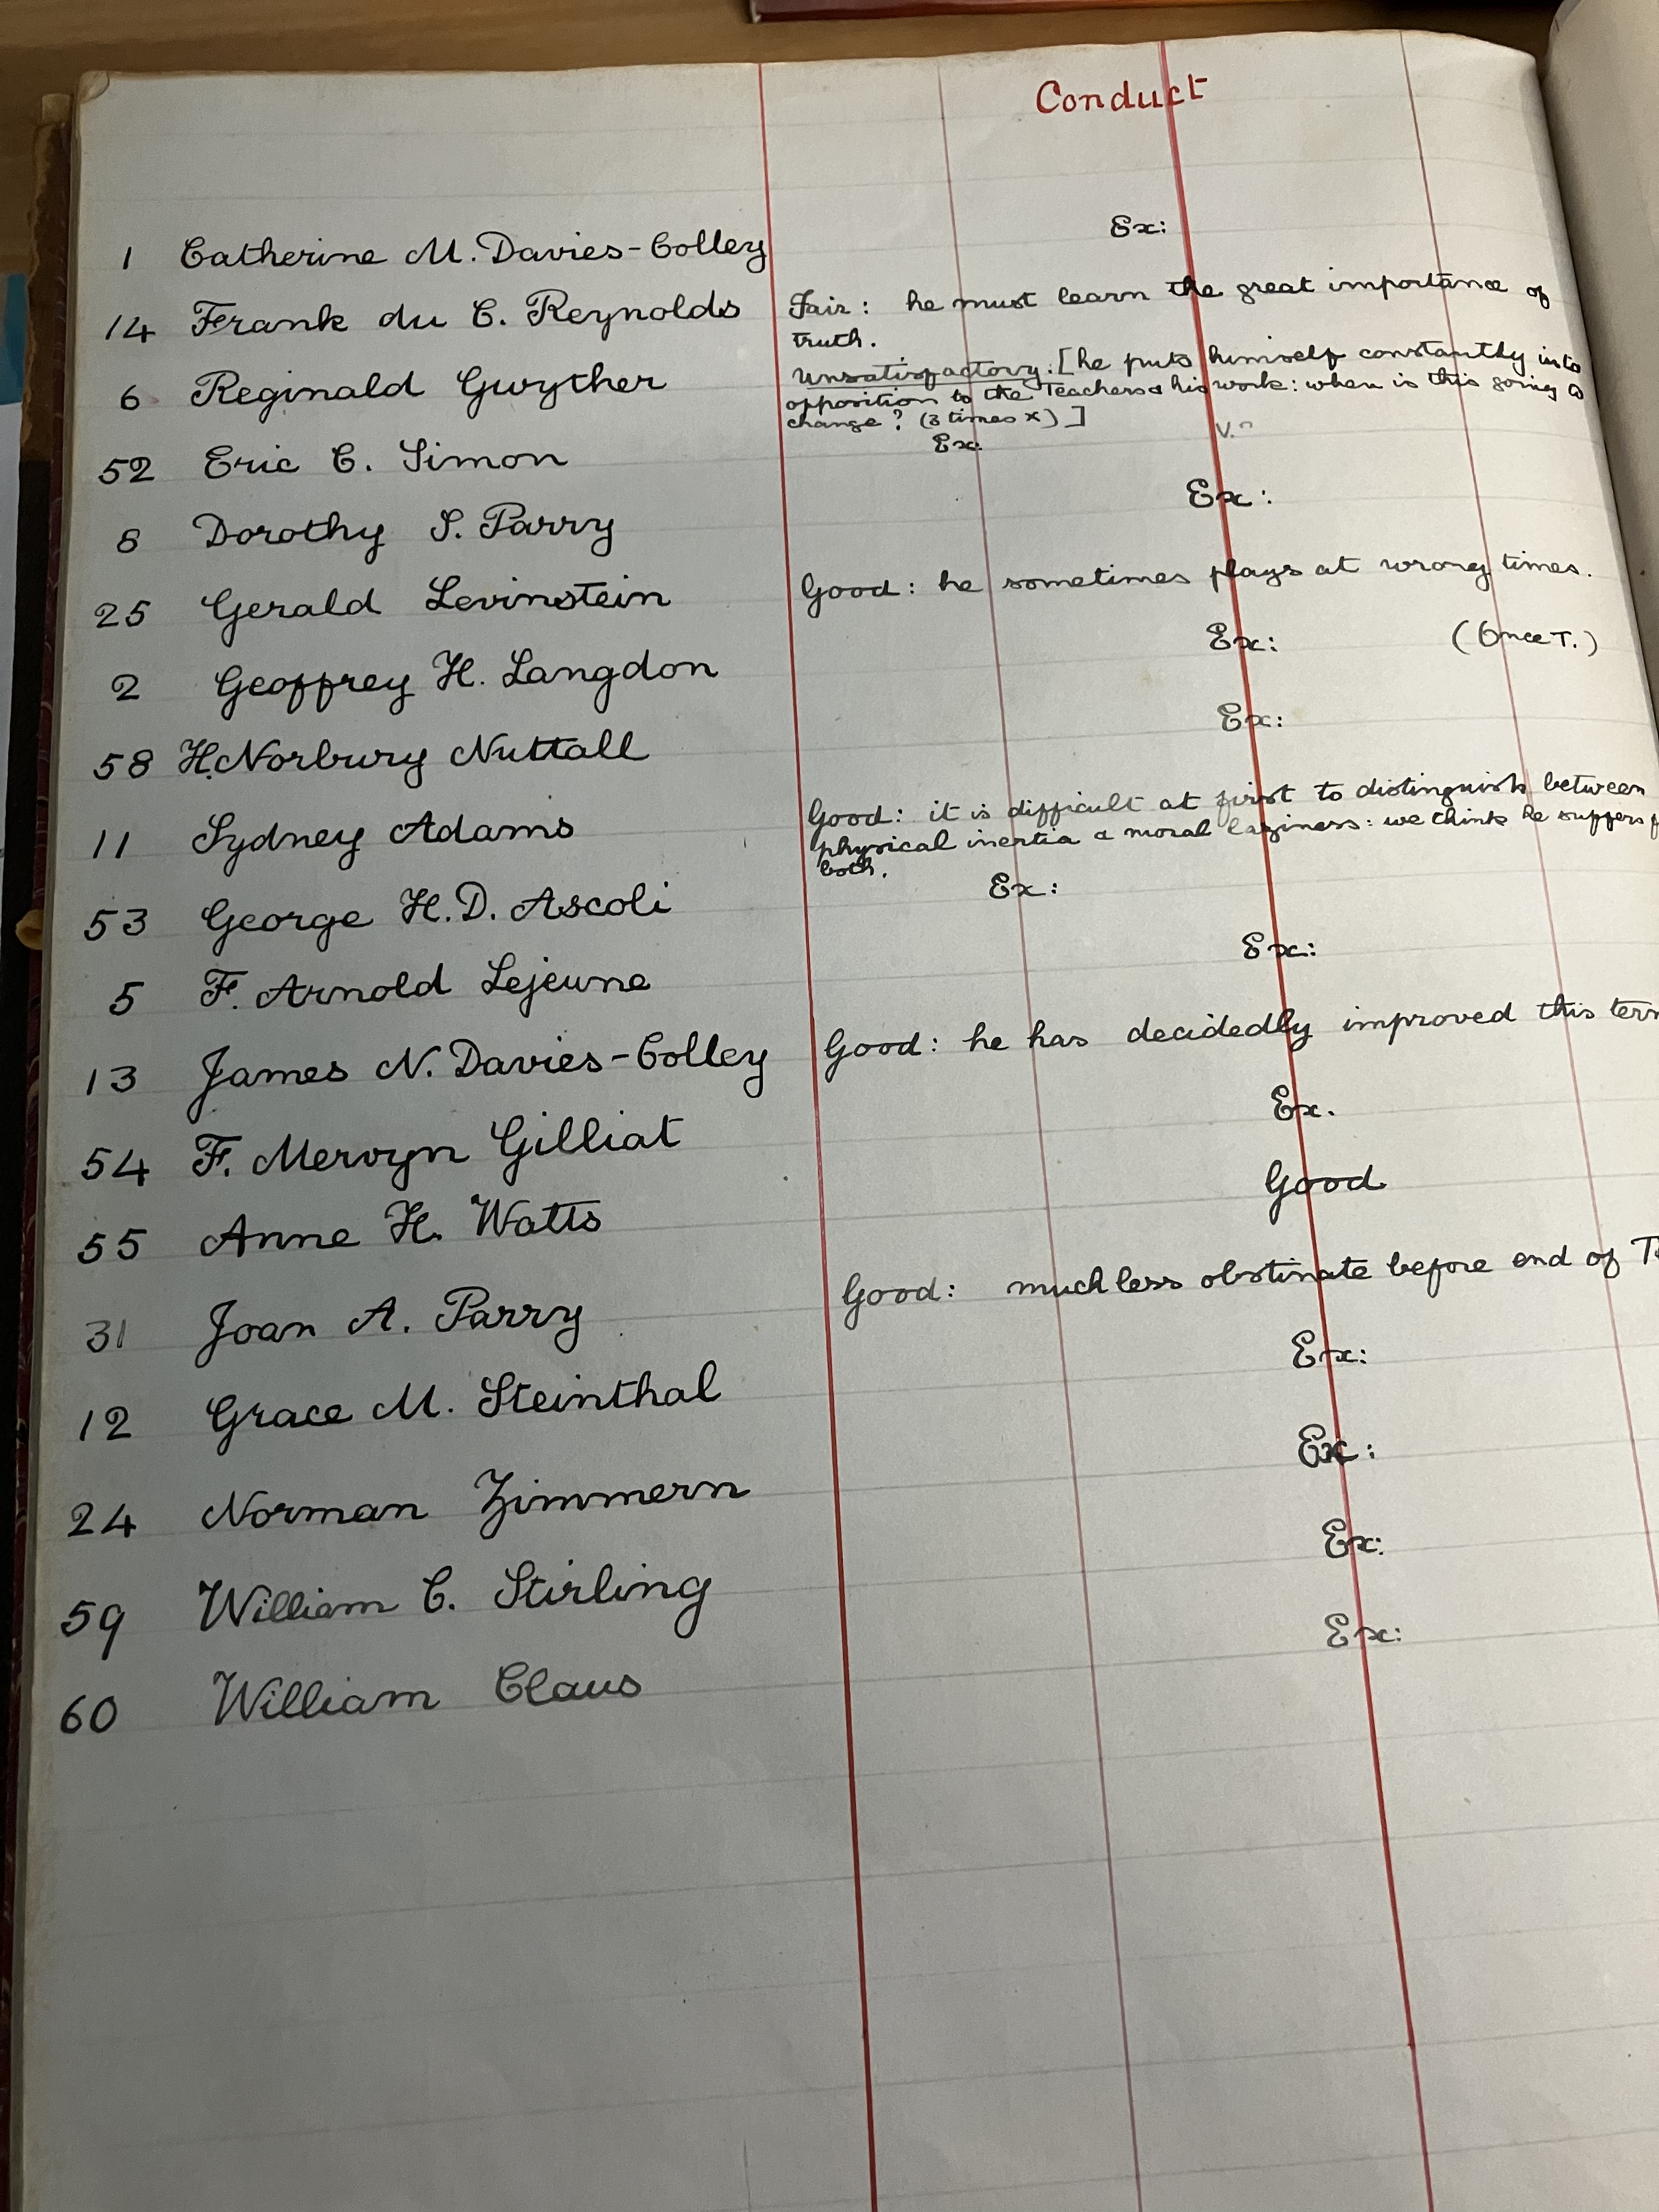 Conduct
1 Catherine M. Davies-Colley Ex:
14 Frank du C. Reynolds Fair: he must learn the great importance of
truth.
6 Reginald Gwyther Unsatisfactory: [he puts himself constantly into
opposition to the Teachers & his work: when is this going to
change? (3 times x)]
52 Eric C. Simon Ex:
8 Dorothy S. Parry Ex:
25 Gerald Levinstein Good: he sometimes plays at wrong times.
2 Geoffrey H. Langdon Ex: (Once T.)
58 H. Norbury Nuttall Ex:
11 Sydney Adams Good: it is difficult at first to distinguish between
physical inertia & moral laziness: we think he suffers
both.
53 George H.D. Ascoli Ex:
5 F. Arnold Lejeune Ex:
13 James N. Davies-Colley Good: he has decidedly improved this
54 F. Mervyn Gilliat Ex.
55 Anne H. Watts Good
31 Joan A. Parry Good: much less obstinate before end of
12 Grace M. Steinthal Ex:
24 Norman Zimmern Ex:
59 William C. Stirling Ex:
60 William Claus Ex: